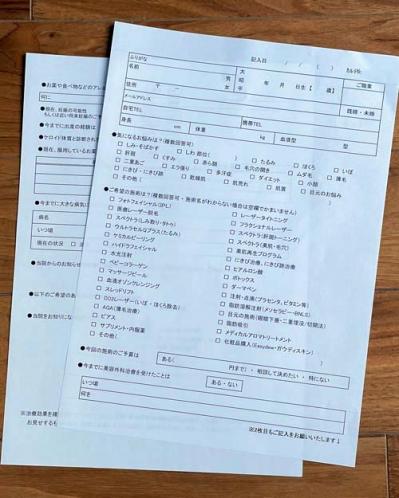 記入日 / / ( ) カルテNo.
ふりがな
名前
男
女
大
昭
平
年 月 日生【 歳】
ご職業
住所 〒 －
メールアドレス
既婚・未婚
自宅TEL
携帯TEL
身長 cm 体重 kg 血液型 型
●気になるお悩みは？(複数回答可)
□ しみ・そばかす
□ しわ 部位( )
□ たるみ
□ ほくろ
□ いぼ
□ 肝斑
□ くすみ
□ 赤ら顔
□ 毛穴の開き
□ ムダ毛
□ 薄毛
□ 二重あご
□ エラ張り
□ 多汗症
□ ダイエット
□ 小顔
□ にきび・にきび跡
□ 乾燥肌
□ 肌荒れ
□ 肌質
□ 目元のお悩み
□ その他( )
●ご希望の施術は？(複数回答可・施術名がわからない場合は空欄でかまいません)
□ フォトフェイシャル(IPL)
□ レーザータイトニング
□ 医療レーザー脱毛
□ フラクショナルレーザー
□ スペクトラ(しみ取り・タトゥ)
□ スペクトラ(肝斑トーニング)
□ ウルトラセルQプラス(たるみ)
□ スペクトラ(美肌・毛穴)
□ ケミカルピーリング
□ 美肌再生プログラム
□ ハイドラフェイシャル
□ にきび治療、にきび跡治療
□ 水光注射
□ ヒアルロン酸
□ ベビーコラーゲン
□ ボトックス
□ マッサージピール
□ ダーマペン
□ 血液オゾンクレンジング
□ 注射・点滴(プラセンタ、ビタミン等)
□ スレッドリフト
□ 脂肪溶解注射(メソセラピー・BNLS)
□ CO2レーザー(いぼ・ほくろ除去)
□ 目元の施術(眼瞼下垂・二重埋没/切開法)
□ AGA(薄毛治療)
□ 脂肪吸引
□ ピアス
□ メディカルアロマトリートメント
□ サプリメント・内服薬
□ 化粧品購入(Easydew・ガウディスキン)
□ その他( )
●今回の施術のご予算は
ある( 円まで)・相談して決めたい・特にない
●今までに美容外科治療を受けたことは
ある・ない
いつ頃
何を
※2枚目もご記入をお願いいたします↓
●お薬や食べ物などのアレ
何に
●現在、妊娠の可能性
もしくは近い将来妊娠のご
●今までに出産の経験は
●ケロイド体質と診断され
●現在、服用しているお薬
●今までに大きな病気に
病名
いつ頃
現在の状況
●当院からのお知らせ
●以下のご希望のあ
●当院をお知りにな
※治療効果を確
お見せするも